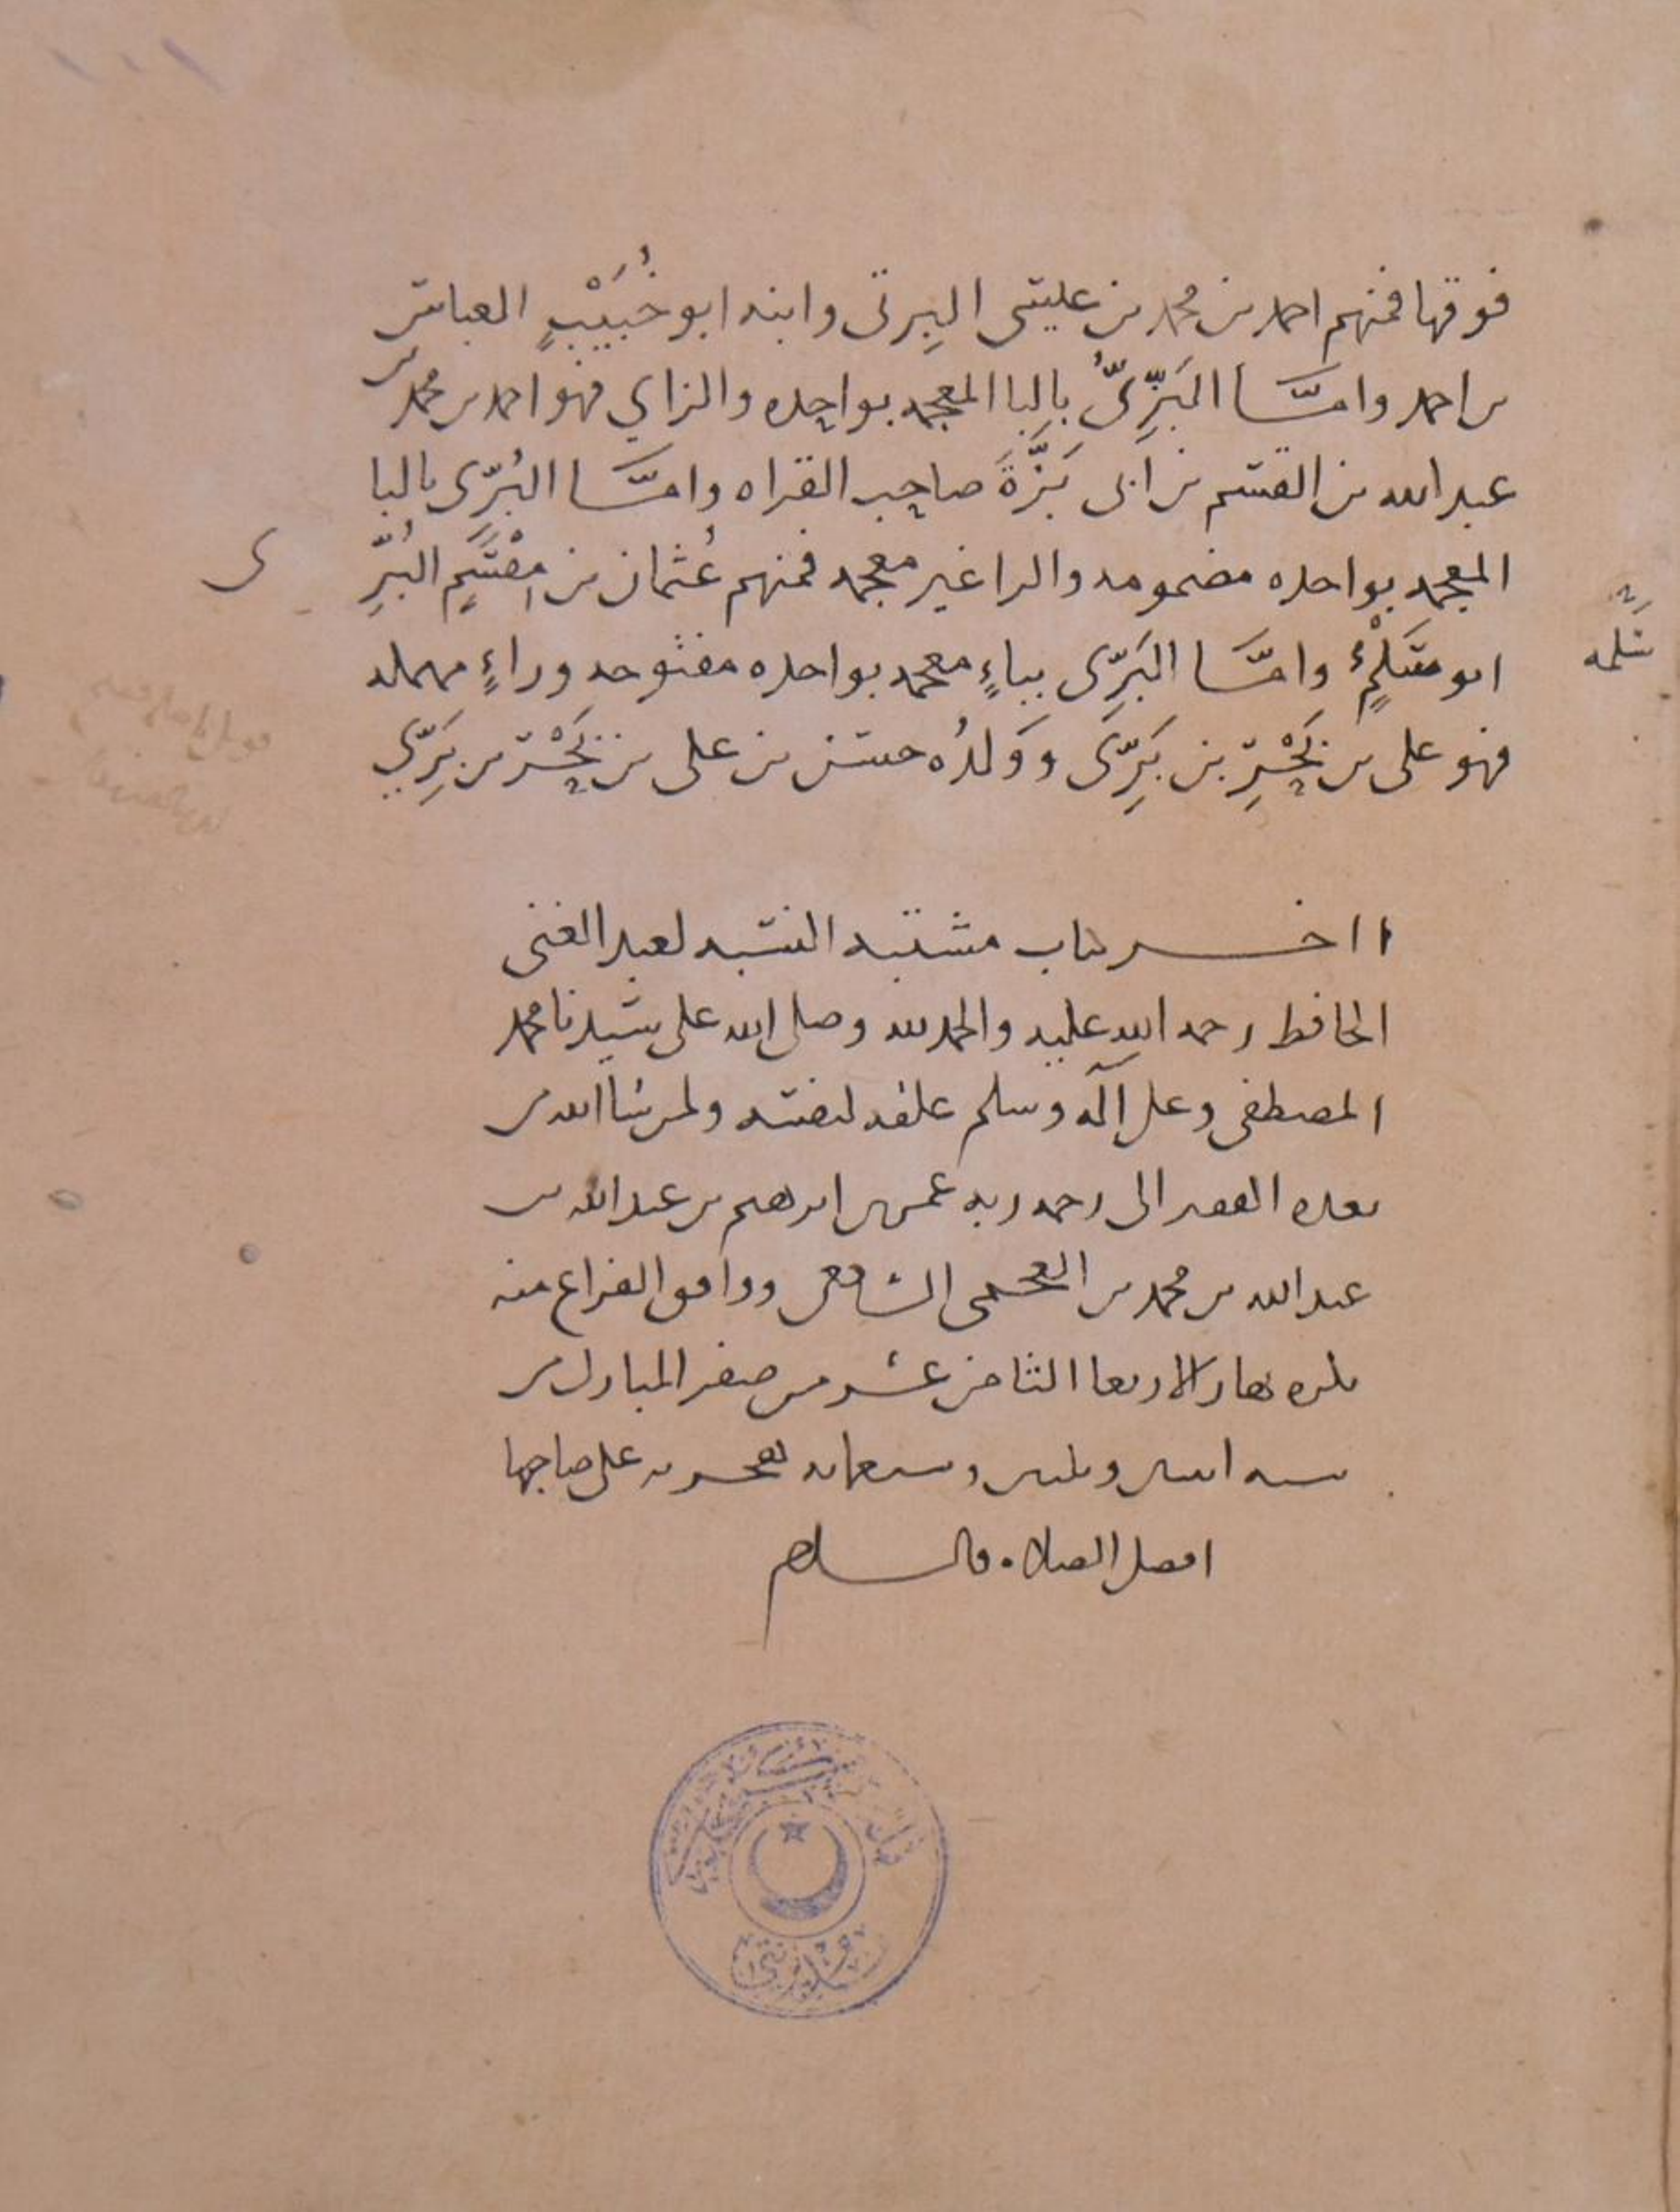 فوقها فمنهم احمد بن محمد بن عيسى البِرتى وابنه ابو خُبَيْبٍ العباس
بن احمد وامَّا البَزِّىُّ بالبا المعجمه بواحده والزاي فهو احمد بن محمد بن
عبد الله بن القسم بن ابى بَزَّةَ صاحب القراه وامَّا البُرّى بالبا
المعجمه بواحده مضمومه والرا غير معجمه فمنهم عُثمان بن مِقْسَمٍ البُرِّى
ابو سَلَمَة وامَّا البَرِّى بباءٍ معجمه بواحده مفتوحه وراءٍ مهمله
سَلمه
فهو على بن بَحْرِ بن بَرِّى وَوَلدُه حسن بن على بن بَحْر بن بَرِّي
اخر كتاب مشتبه النسبه لعبد الغنى
الحافظ رحمه الله عليه والحمد لله وصلى الله على سيدنا محمد
المصطفى وعلى آله وسلم علقه لنفسه ولمن شا الله من
بعده الفقير الى رحمه ربه عمر بن ابرهيم بن عبد الله بن
عبد الله بن محمد بن العجمى الشافعى ووافق الفراغ منه
بكره نهار الاربعا الثامن عشر من صفر المبارك من
سنه اثنين وثلثين وسبعمايه لهجريه على صاحبها
افضل الصلاه والسلام